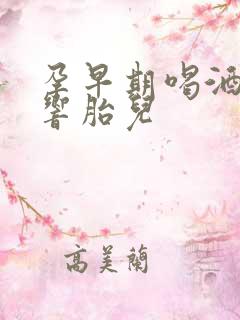 孕早期喝酒
响胎儿
高美兰